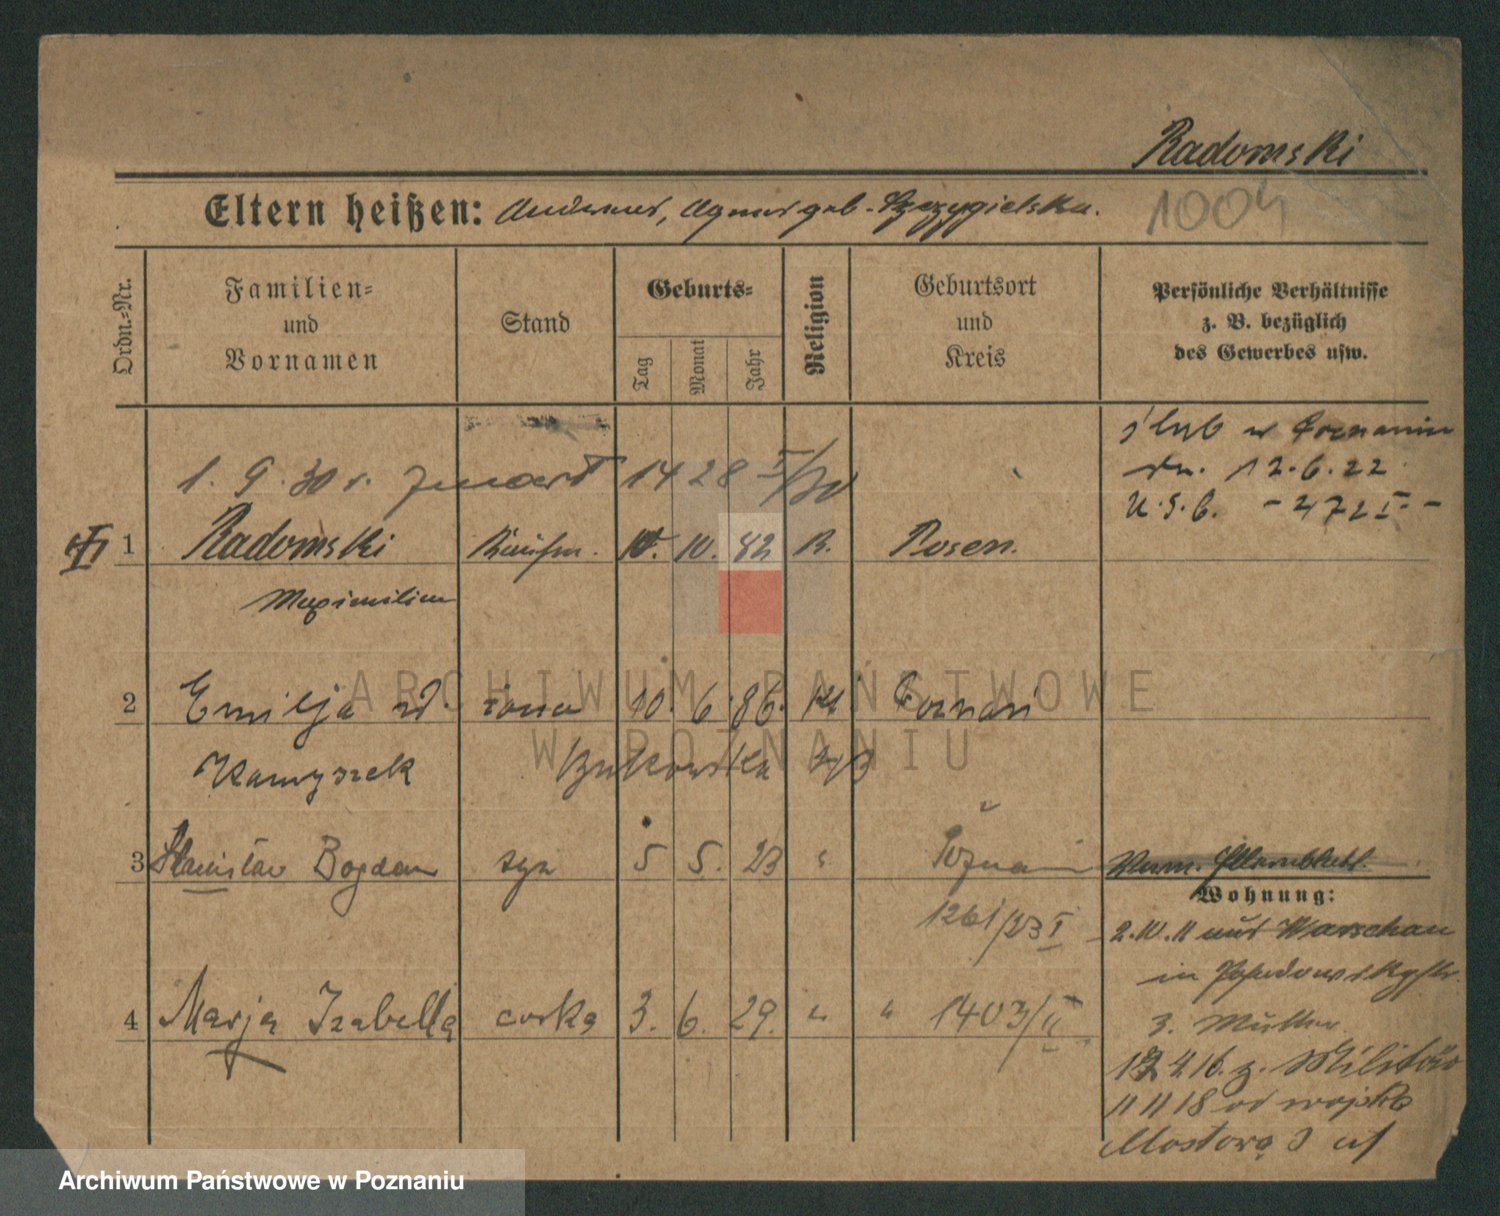 Radomski
Eltern heißen: Andreas, Agnes geb. Przygielska.
1004
Ordn.-Nr.
Familien- und Vornamen
Stand
Geburts-
Tag
Monat
Jahr
Religion
Geburtsort und Kreis
Persönliche Verhältnisse z. B. bezüglich des Gewerbes usw.
ślub w Poznaniu
dn. 12.6.22
U.S.C. - 472 I. -
1. 9. 30 r. zmarł 1428 I/30
1 Radomski Kaufm. 10. 82 R. Posen.
Maximilian
2 Emilja żona 10. 6. 86. Poznań
Kamyszek Bukowska
3 Stanisław Bogdan syn 5 5. 23 " Poznań
1261/23 I
Wohnung:
2.10.11 aus Warschau
in
3. Müller
4 Marja Izabella córka 3. 6. 29. " " 1403/II
4.16. z. Militär
11 11 18 od wojska
Mostowa 3
ARCHIWUM PAŃSTWOWE
W POZNANIU
Archiwum Państwowe w Poznaniu